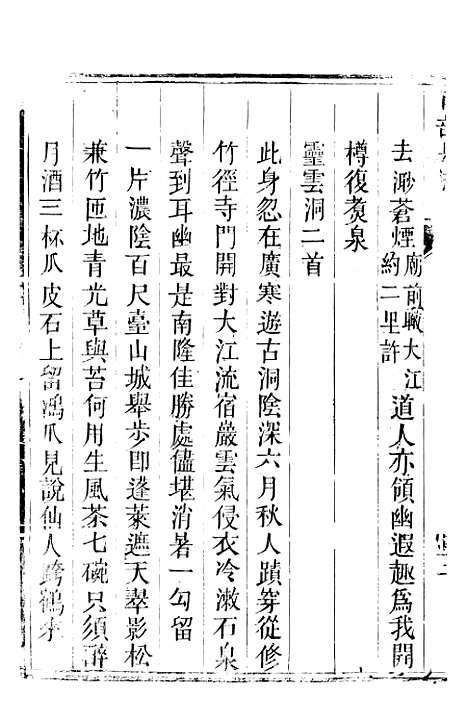 去渺蒼煙廟前瞰大江約二里許道人亦領幽遐趣為我開
樽復煑泉
靈雲洞二首
此身忽在廣寒遊古洞陰深六月秋人蹟穿從修
竹徑寺門開對大江流宿巖雲氣侵衣冷漱石泉
聲到耳幽最是南隆佳勝處儘堪消暑一勾留
一片濃陰百尺臺山城舉步卽逢萊遮天翠影松
兼竹匝地青光草與苔何用生風茶七碗只須醉
月酒三杯爪皮石上留鴻爪見說仙人跨鶴來